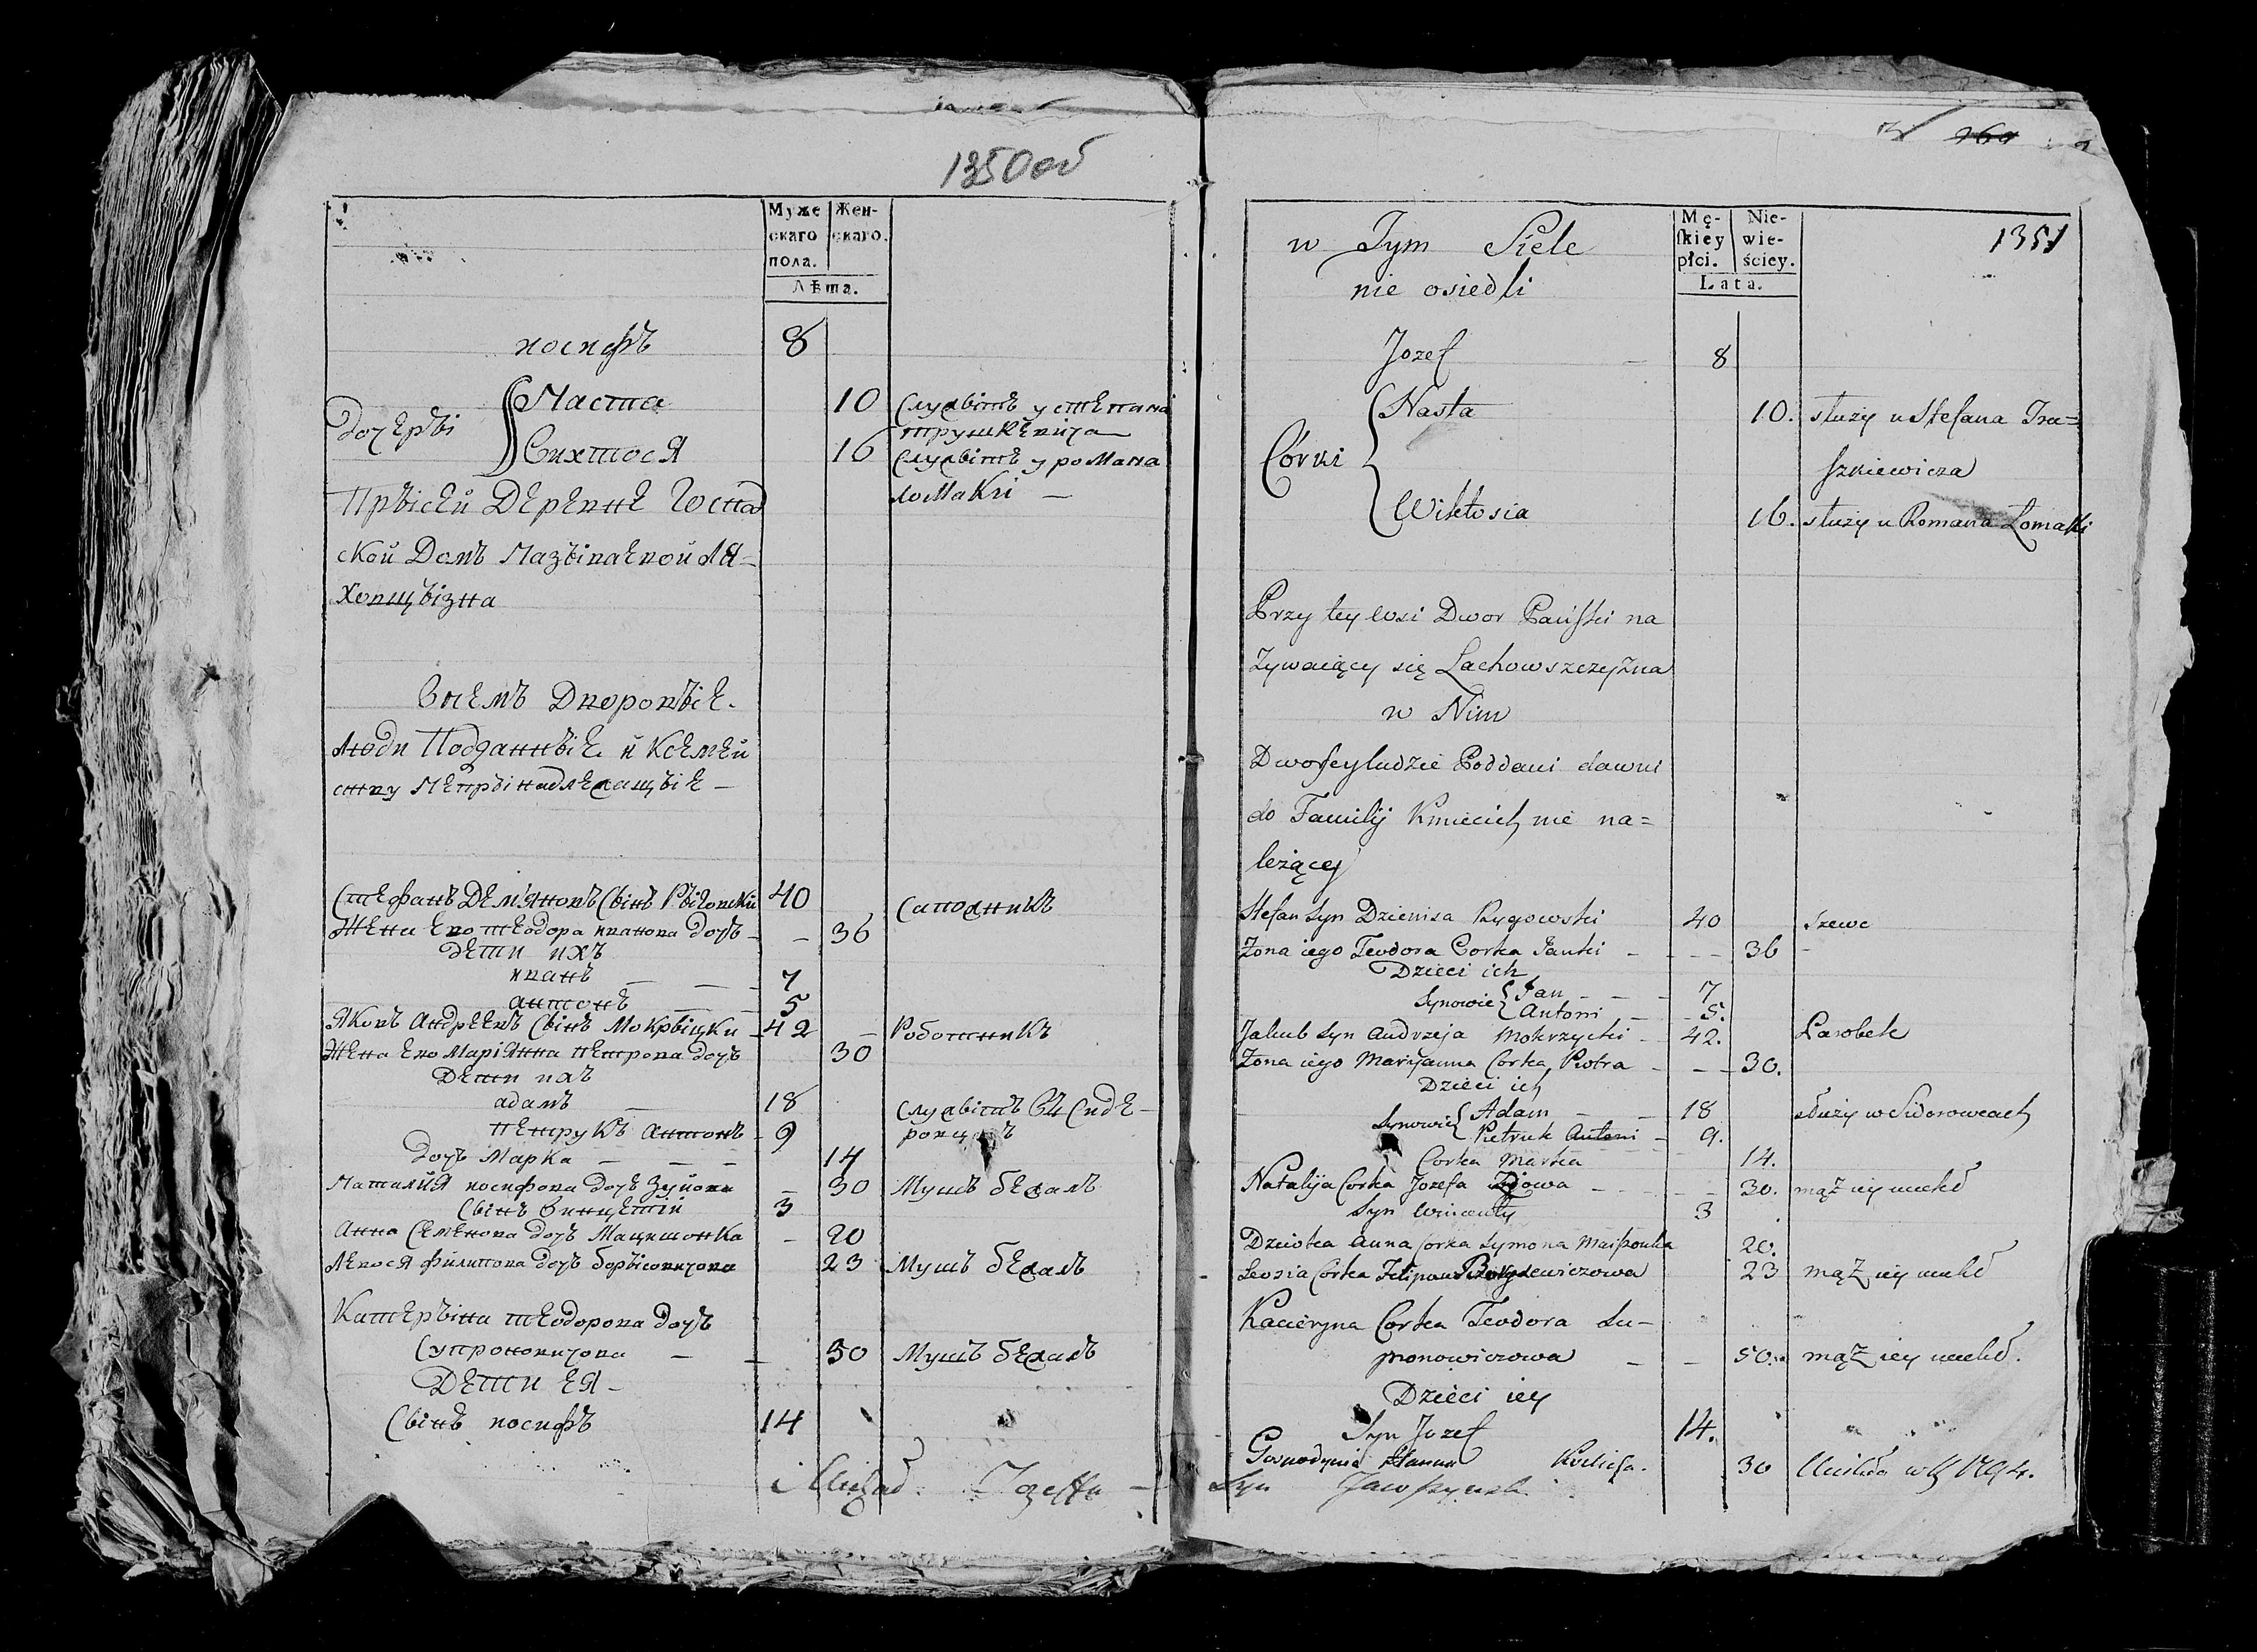 1350 об
Муже
скаго
пола.
Жен-
скаго.
Лѣта.
иосифъ 8
дочерьі
Наста 10 Служітъ у степана
трушкевича
Викгося 16 Служітъ у романа
ломакі —
Прьісей Деревне Госпад
ской Домъ Назьіваемой Ля-
Ховщьізна
Вьемъ Дворовьіе.
Люди Подданньіе и Ксемей
ству Непрьінадлежащьіе —
Стефанъ Демяновъ Сьінъ Рьіговски 40 Сапожникъ
Жена Ево теодора иванова дочь — — 36
Дети ихъ
иванъ — — — 7
антонъ — — 5
Яковъ Андреевъ Сьінъ Мокрьіцки — 42 — Роботникъ
Жена Ево Маріянна петрова дочь 30
Дети ихъ
адамъ — 18 служітъ въ Сиде-
петрукъ антонъ — 9
дочь Марка — — — 14
Наталия иосифова дочь Зуйова — 30 Мушъ бежалъ
Сьінъ Винцетій 3
Анна Семенова дочь Мацишонка — 20
Левося филипова дочь борьісовичова 23 Мушъ бежалъ
Катерьіна теодорова дочь
Супроновичова — — 50 Мушъ бежалъ
Дети ея —
Сьінъ иосифъ 14
1351
w Tym Siele
nie osiedli
Mę-
ſkiey
płci.
Nie-
wie-
ściey.
Lata.
Jozef — 8
Córki
Nasta 10. służy u Stefana Tru=
szkiewicza
Wiktosia 16. służy u Romana Łomatki
Przy tey wsi Dwor Pański na
zywaiący się Lachowszczyzna
w Nim
Dworscy ludzie Poddani dawni
do Familij Kmiecich nie na=
leżący
Stefan Syn Dzienisa Rygowski 40 Szewc
Żona iego Teodora Corka Janki — — — 36 —
Dzieci ich
Synowie Jan — — — 7
Antoni — — 5.
Jakub Syn Andrzeja Mokrzycki — 42. Parobek
Żona iego Maryanna Corka Piotra — — — 30.
Dzieci ich
Synowie Adam — — 18 służy w Sidorowcach
Pietruk Antoni — 9.
Corka Marka 14.
Natalija Corka Jozefa — — 30. mąż iey uciekł
Syn Wincenty 3
Dziewka Anna Corka Symona 20.
Leosia Corka Filipowa 23 mąż iey uciekł
Kacieryna Corka Teodora Su-
pronowiczowa — — 50. mąż iey uciekł.
Dzieci iey
Syn Jozef 14.
Gospodynia Hanna 30
Michał Jozeffa — Syn